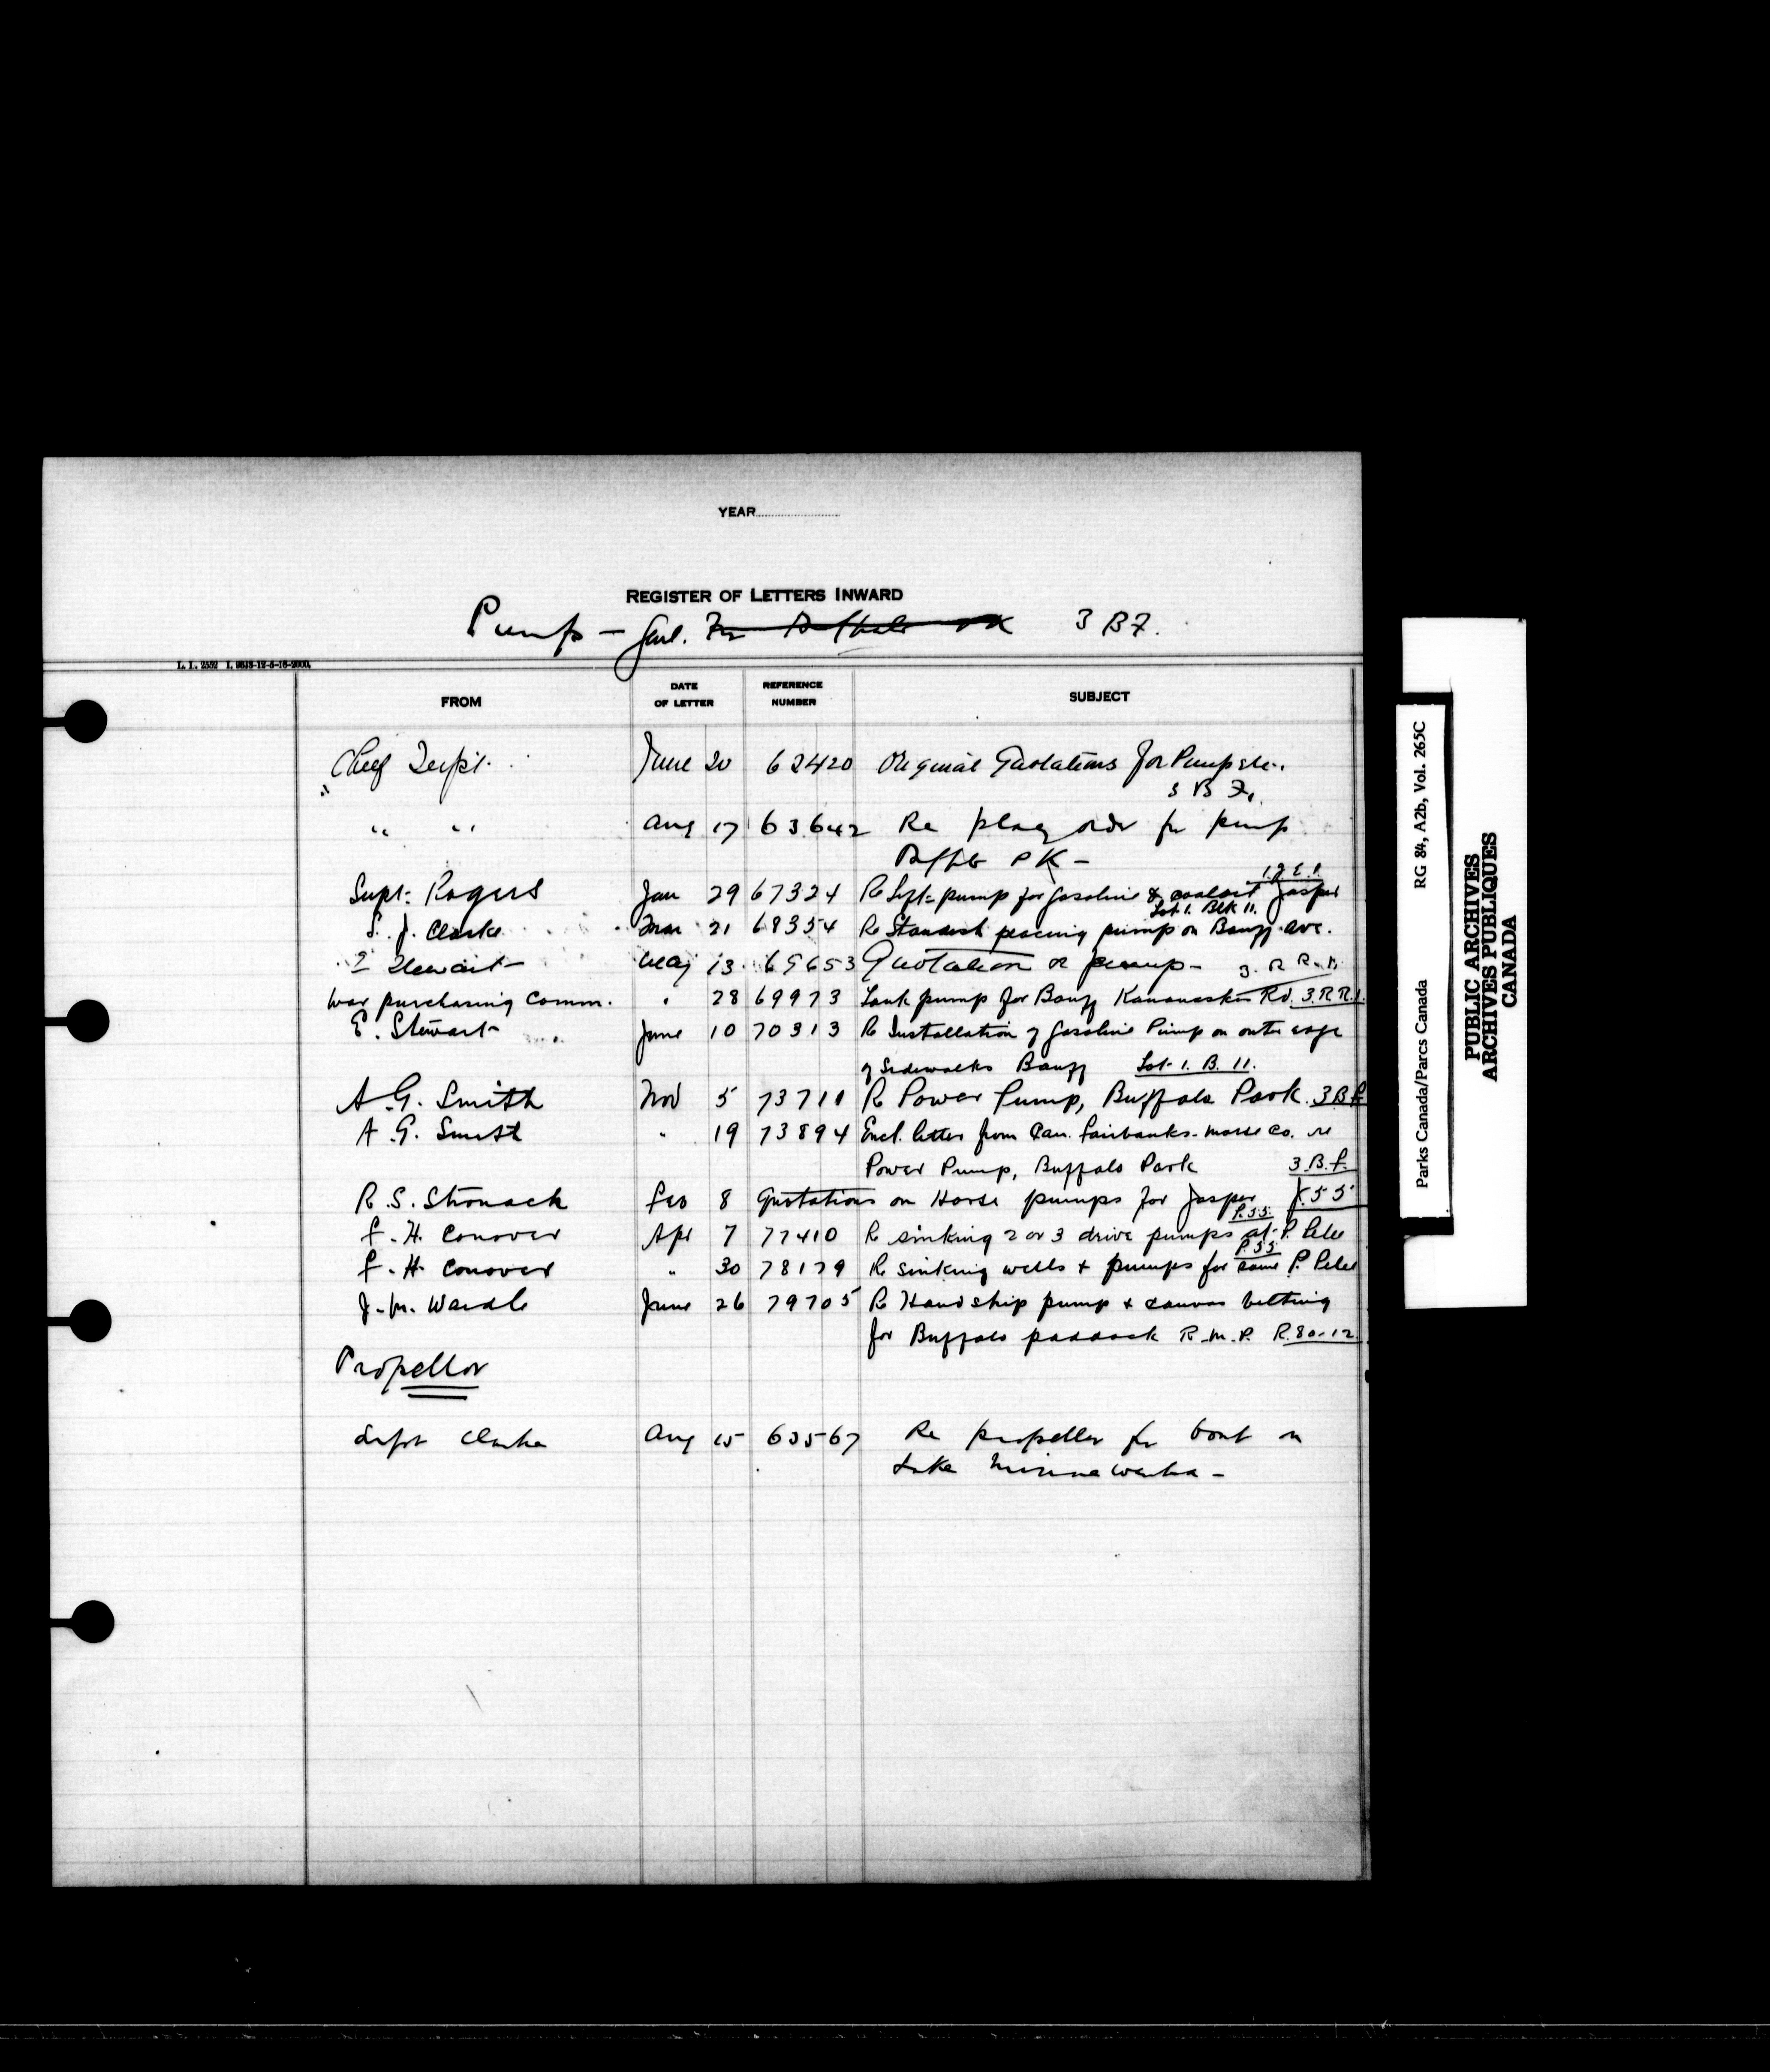 YEAR
REGISTER OF LETTERS INWARD
Pump - Genl. 3 B7.
L. I. 2552 I. 9813-12-5-16-2000.
FROM DATE OF LETTER REFERENCE NUMBER SUBJECT
Chief Supt. June 20 62420 Original Quotations for Pump etc.
3 B 7.
" " Aug 17 63642 Re order for pump
Buffalo Pk -
1.J.E.1.
Supt. Rogers Jan 29 67324 Re Sept. pump for gasoline & coal oil Jasper
Lot 1. Blk 11.
S. J. Clarke Mar 21 68354 Re Standish placing pump on Banff Ave.
Stewart May 13 69653 Quotation on pump - 3. R R. 1.
War purchasing Comm. " 28 69973 Tank pump for Banff Kananaskis Rd. 3.R R.1.
E. Stewart June 10 70313 Re Installation of Gasoline Pump on outer edge
of Sidewalks Banff Lot 1. B. 11.
A. G. Smith Nov 5 73711 Re Power Pump, Buffalo Park. 3 B F
A. G. Smith " 19 73894 Encl. letter from Can. Fairbanks-Morse Co. re
Power Pump, Buffalo Park 3.B.F.
R. S. Stronach Feb 8 Quotations on Horse pumps for Jasper J.55
P.55.
F. H. Conover Apr 7 77410 Re sinking 2 or 3 drive pumps at P. Pelee
P.55
F. H. Conover " 30 78179 Re sinking wells & pumps for same P. Pelee
J. M. Wardle June 26 79705 Re Hand ship pump & canvas belting
for Buffalo paddock R.M.P. R.80-12.
Propellor
Supt Clarke Aug 15 63567 Re propeller for boat on
Lake Minnewanka -
Parks Canada/Parcs Canada RG 84, A2b, Vol. 265C
PUBLIC ARCHIVES
ARCHIVES PUBLIQUES
CANADA